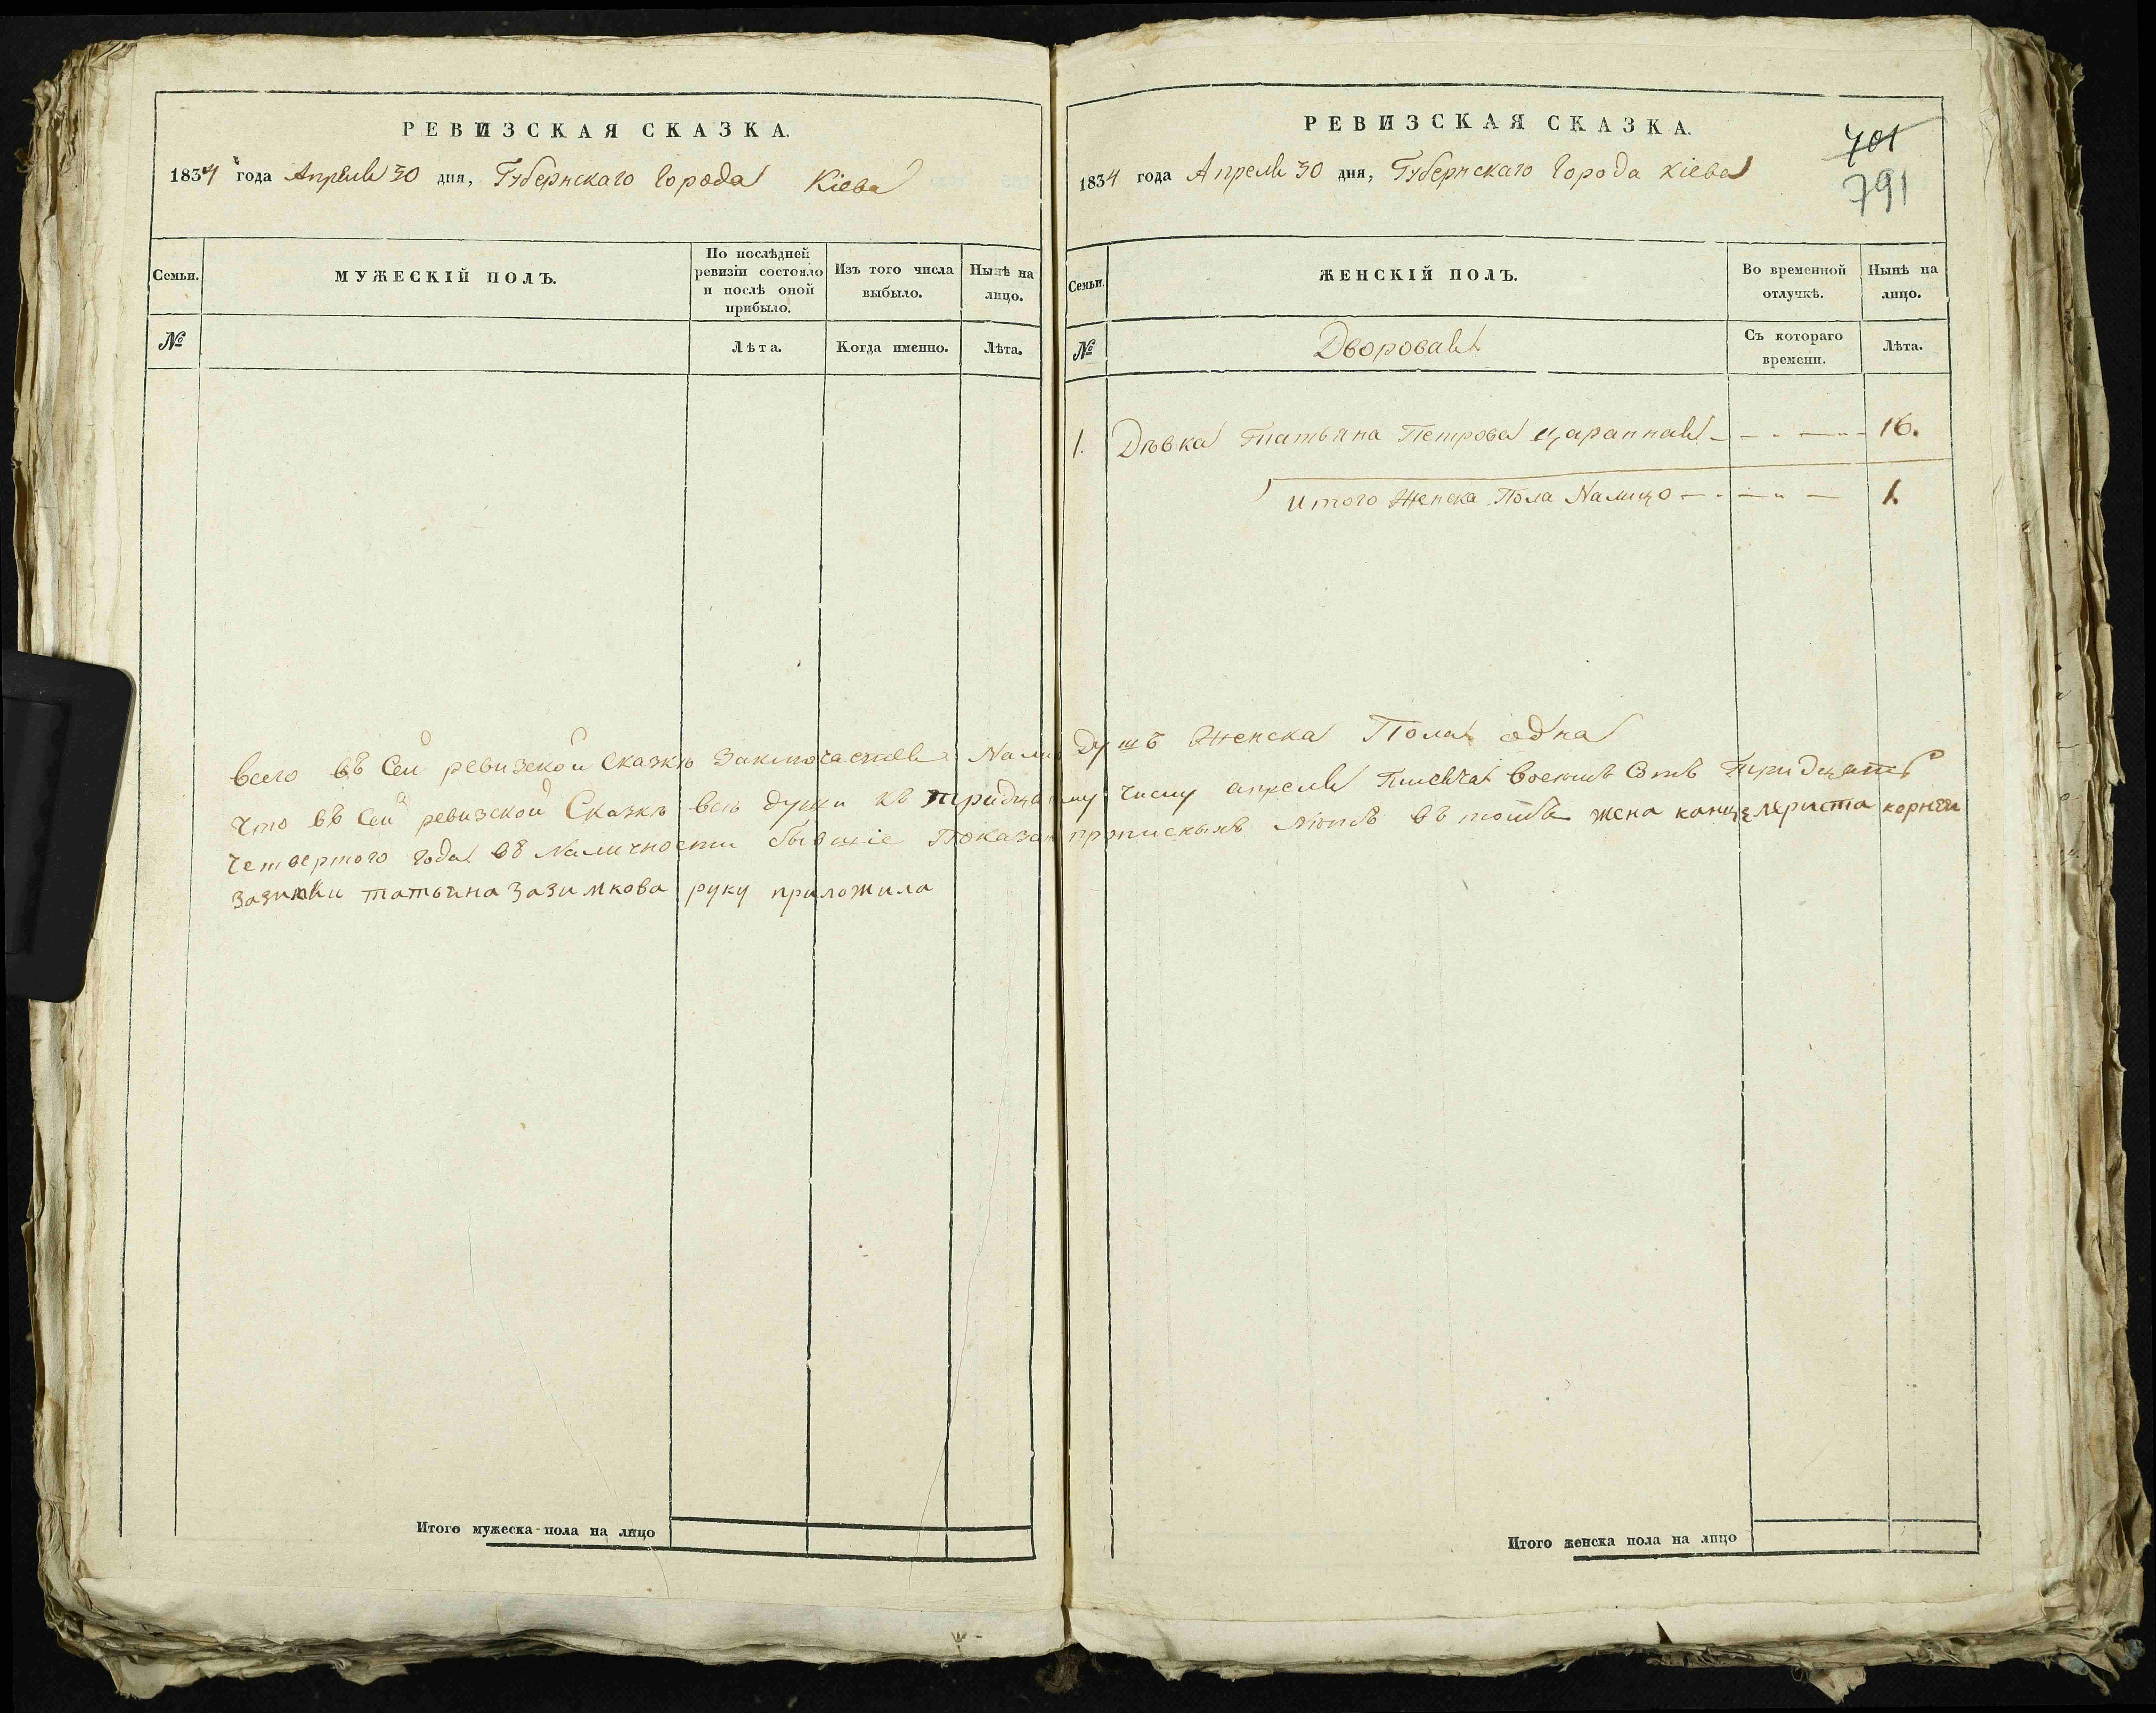 РЕВИЗСКАЯ СКАЗКА.
1834 года Апреля 30 дня, Губернскаго Города Кіева
Семьи.
МУЖЕСКІЙ ПОЛЪ.
По послѣдней ревизіи состояло и послѣ оной прибыло.
Изъ того числа выбыло.
Нынѣ на лицо.
№
Лѣта.
Когда именно.
Лѣта.
РЕВИЗСКАЯ СКАЗКА.
1834 года Апреля 30 дня, Губернскаго Города Кіева
701
791
Семьи.
ЖЕНСКІЙ ПОЛЪ.
Во временной отлучкѣ.
Нынѣ на лицо.
№
Дворовая
Съ котораго времени.
Лѣта.
1. Дѣвка Татьяна Петрова 16.
Итого Женска Пола Налицо 1.
всего въ Сей ревизской Сказкѣ Заключается Душъ Женска Пола одна
что въ Сей ревизской Сказкѣ всѣ души къ числу апреля Тысяча Восемь Сотъ Тридцать
Четвертого года въ Наличности бывшіе жена канцеляриста корнея
татьяна Зазимкова руку приложила
Итого мужеска пола на лицо
Итого женска пола на лицо